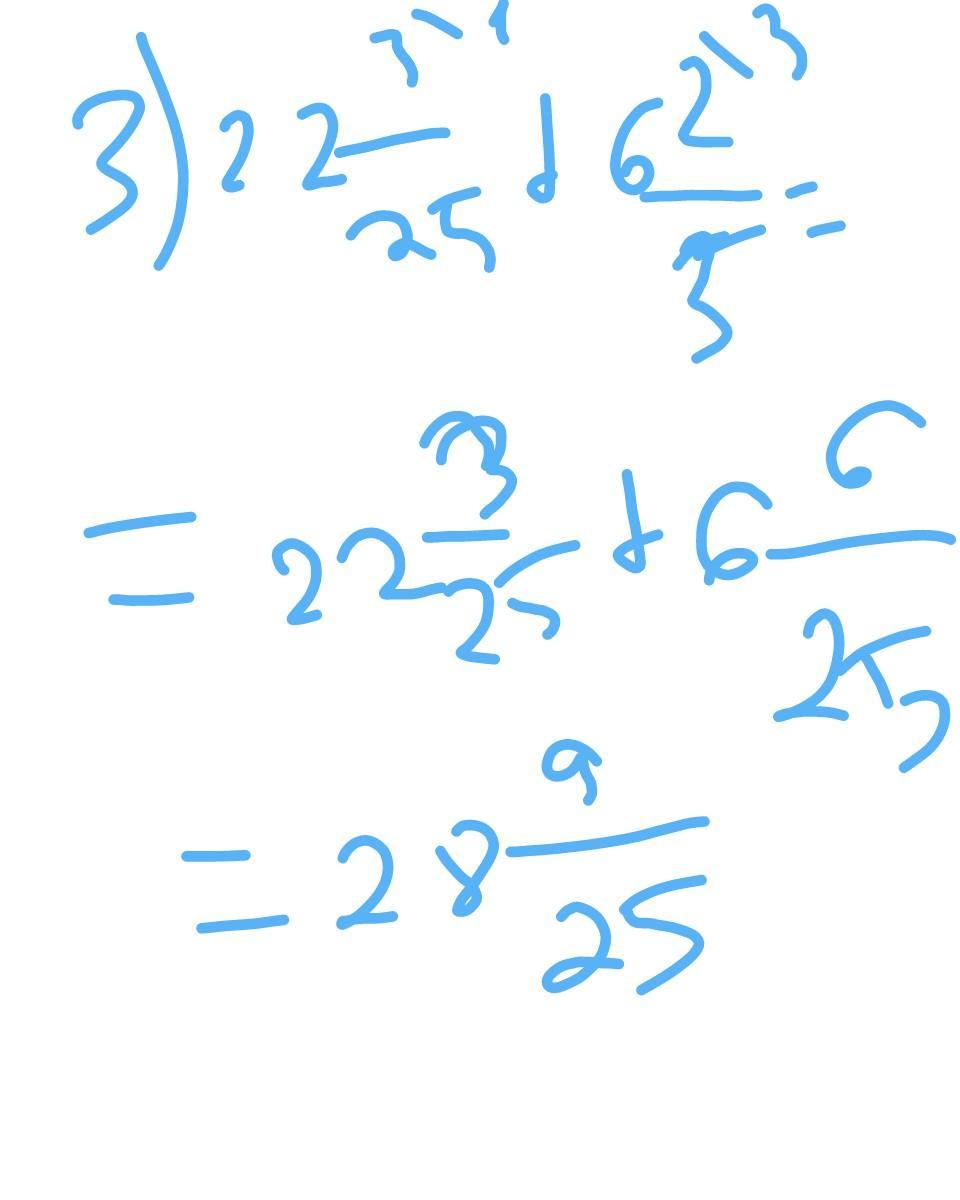 3) 22 3\1/25 + 6 2\3/5 =
= 22 3/25 + 6 6/25
= 28 9/25